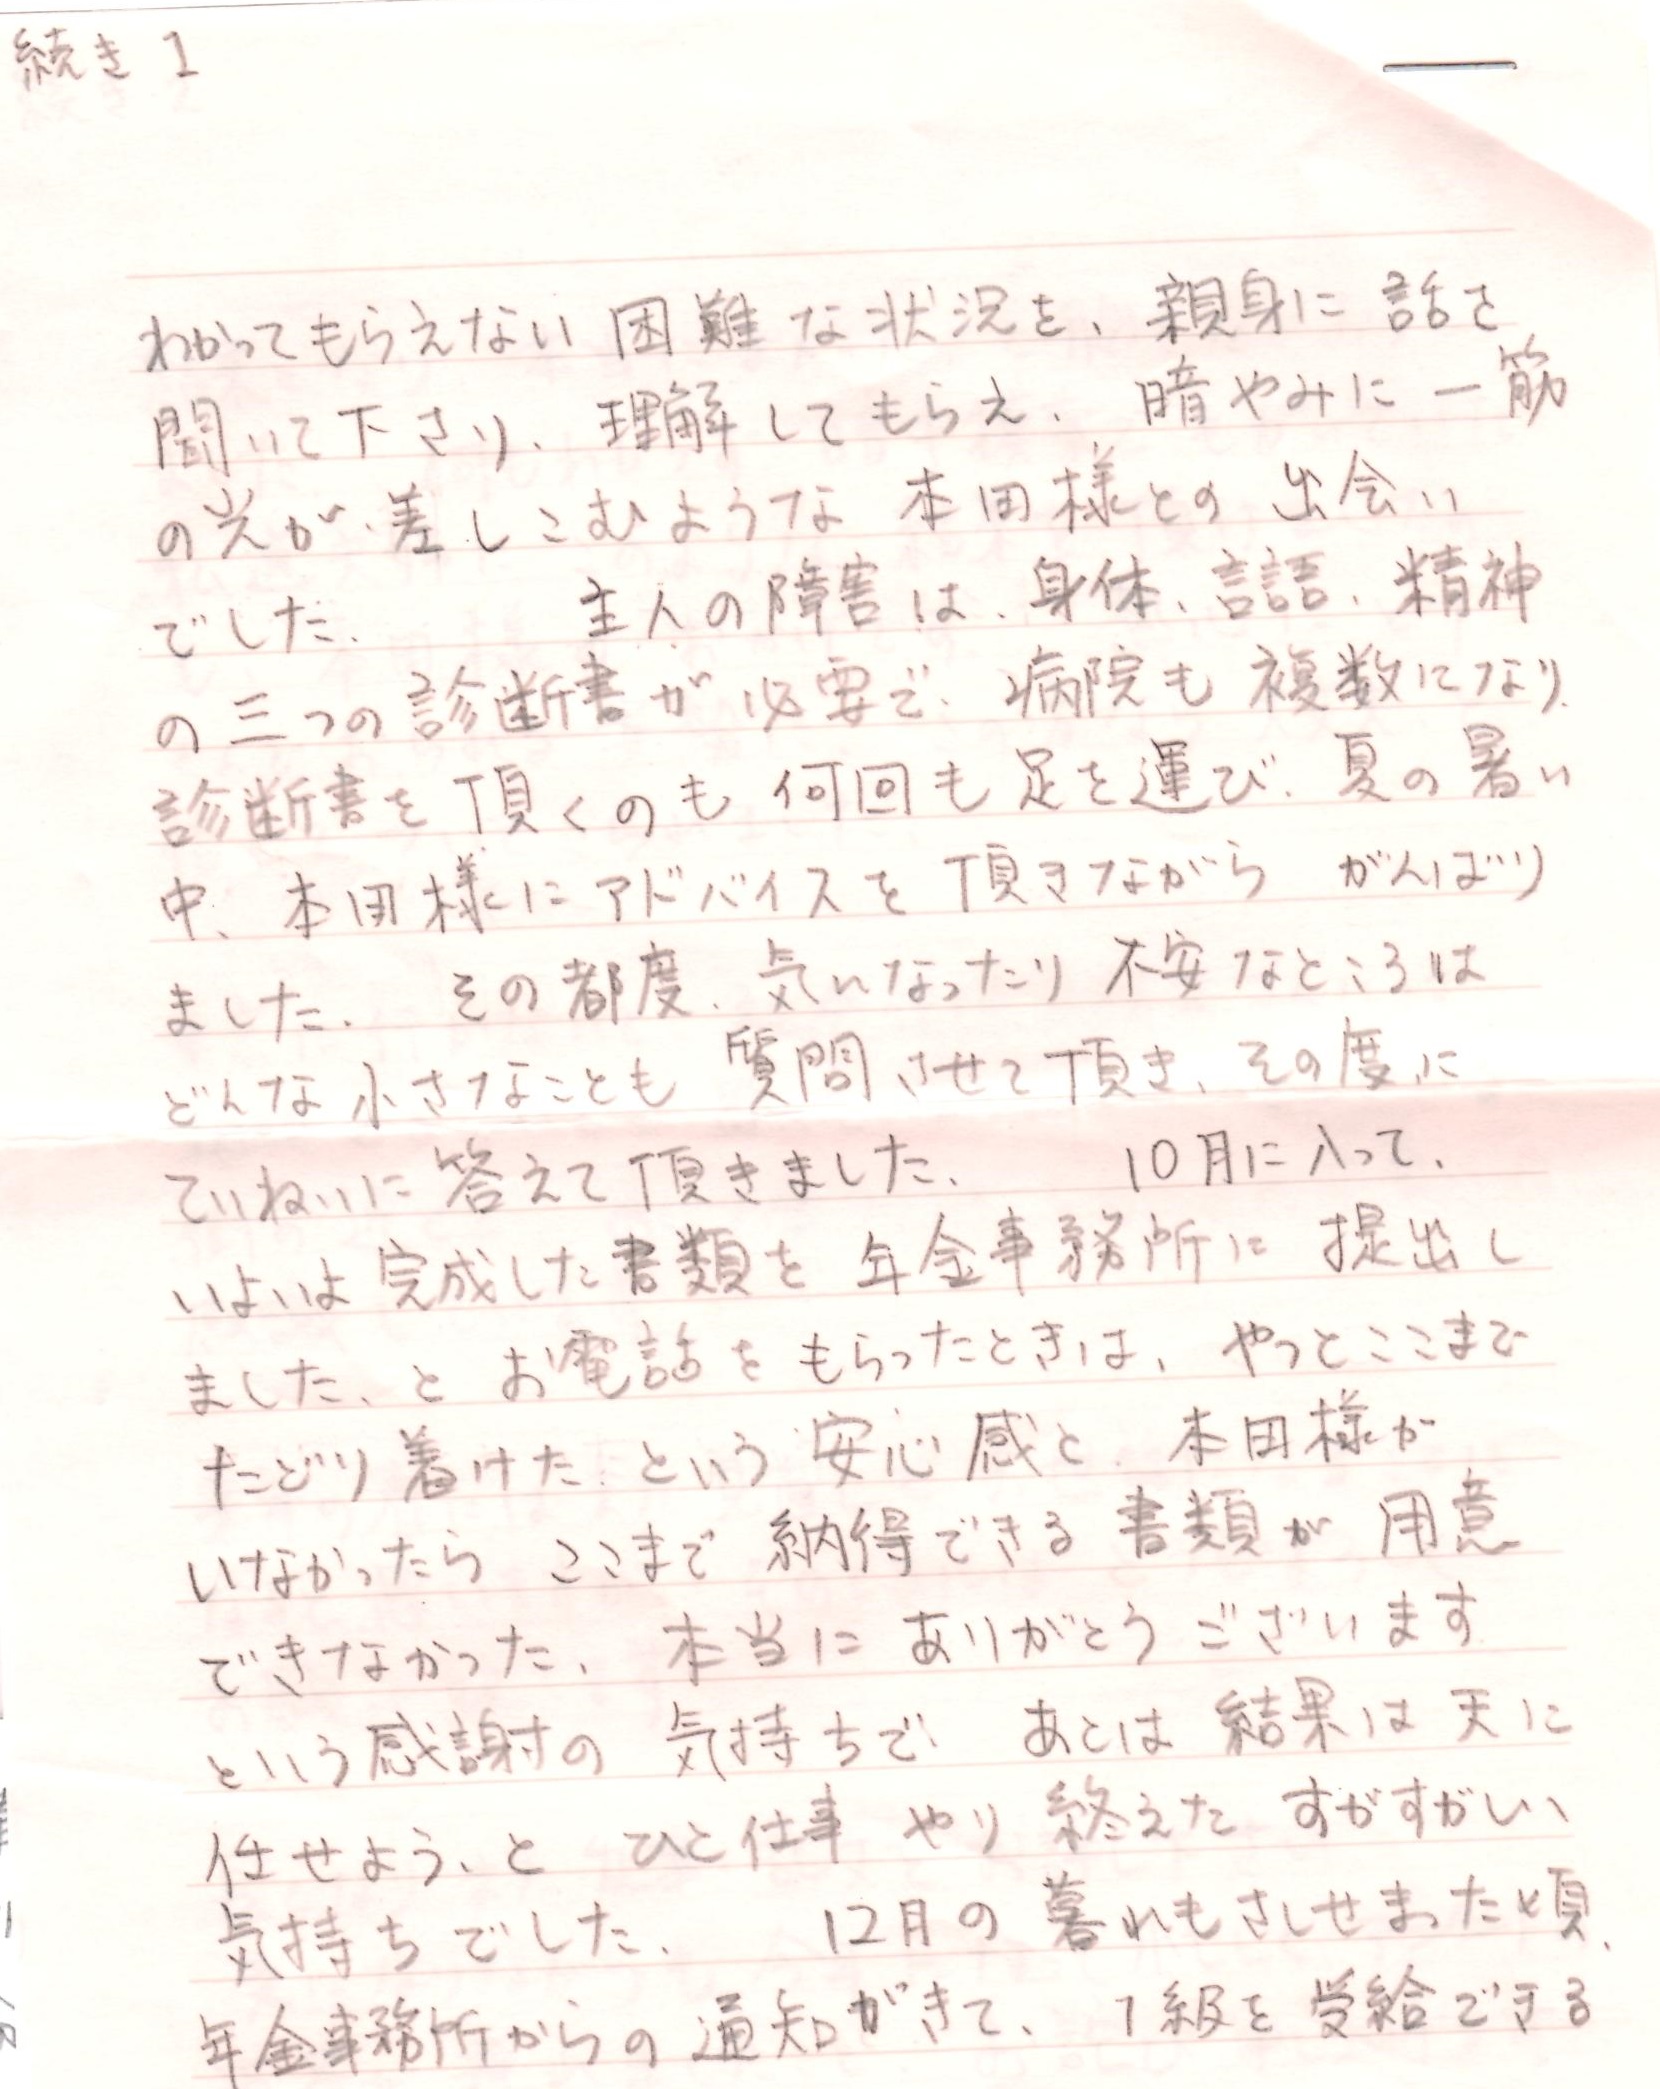 続き 1
わかってもらえない 困難な状況を、親身に 話を
聞いて下さり、理解してもらえ、暗やみに一筋
の光が、差しこむような 本田様との 出会い
でした、 主人の障害は、身体、言語、精神
の三つの診断書が必要で、病院も複数になり、
診断書を頂くのも何回も足を運び、夏の暑い
中、本田様にアドバイスを頂きながら がんばり
ました、 その都度、気になったり不安なところは
どんな小さなことも 質問させて頂き、その度に
ていねいに答えて頂きました、 10月に入って、
いよいよ完成した書類を 年金事務所に 提出し
ました、と お電話を もらったときは、やっとここまで
たどり着けた、という安心感と、本田様が
いなかったら ここまで 納得できる書類が 用意
できなかった、本当に ありがとう ございます
という感謝の 気持ちで あとは 結果は天に
任せよう、と ひと仕事 やり終えた すがすがしい
気持ちでした、 12月の暮れもさしせまった頃、
年金事務所からの通知がきて、1級を受給できる